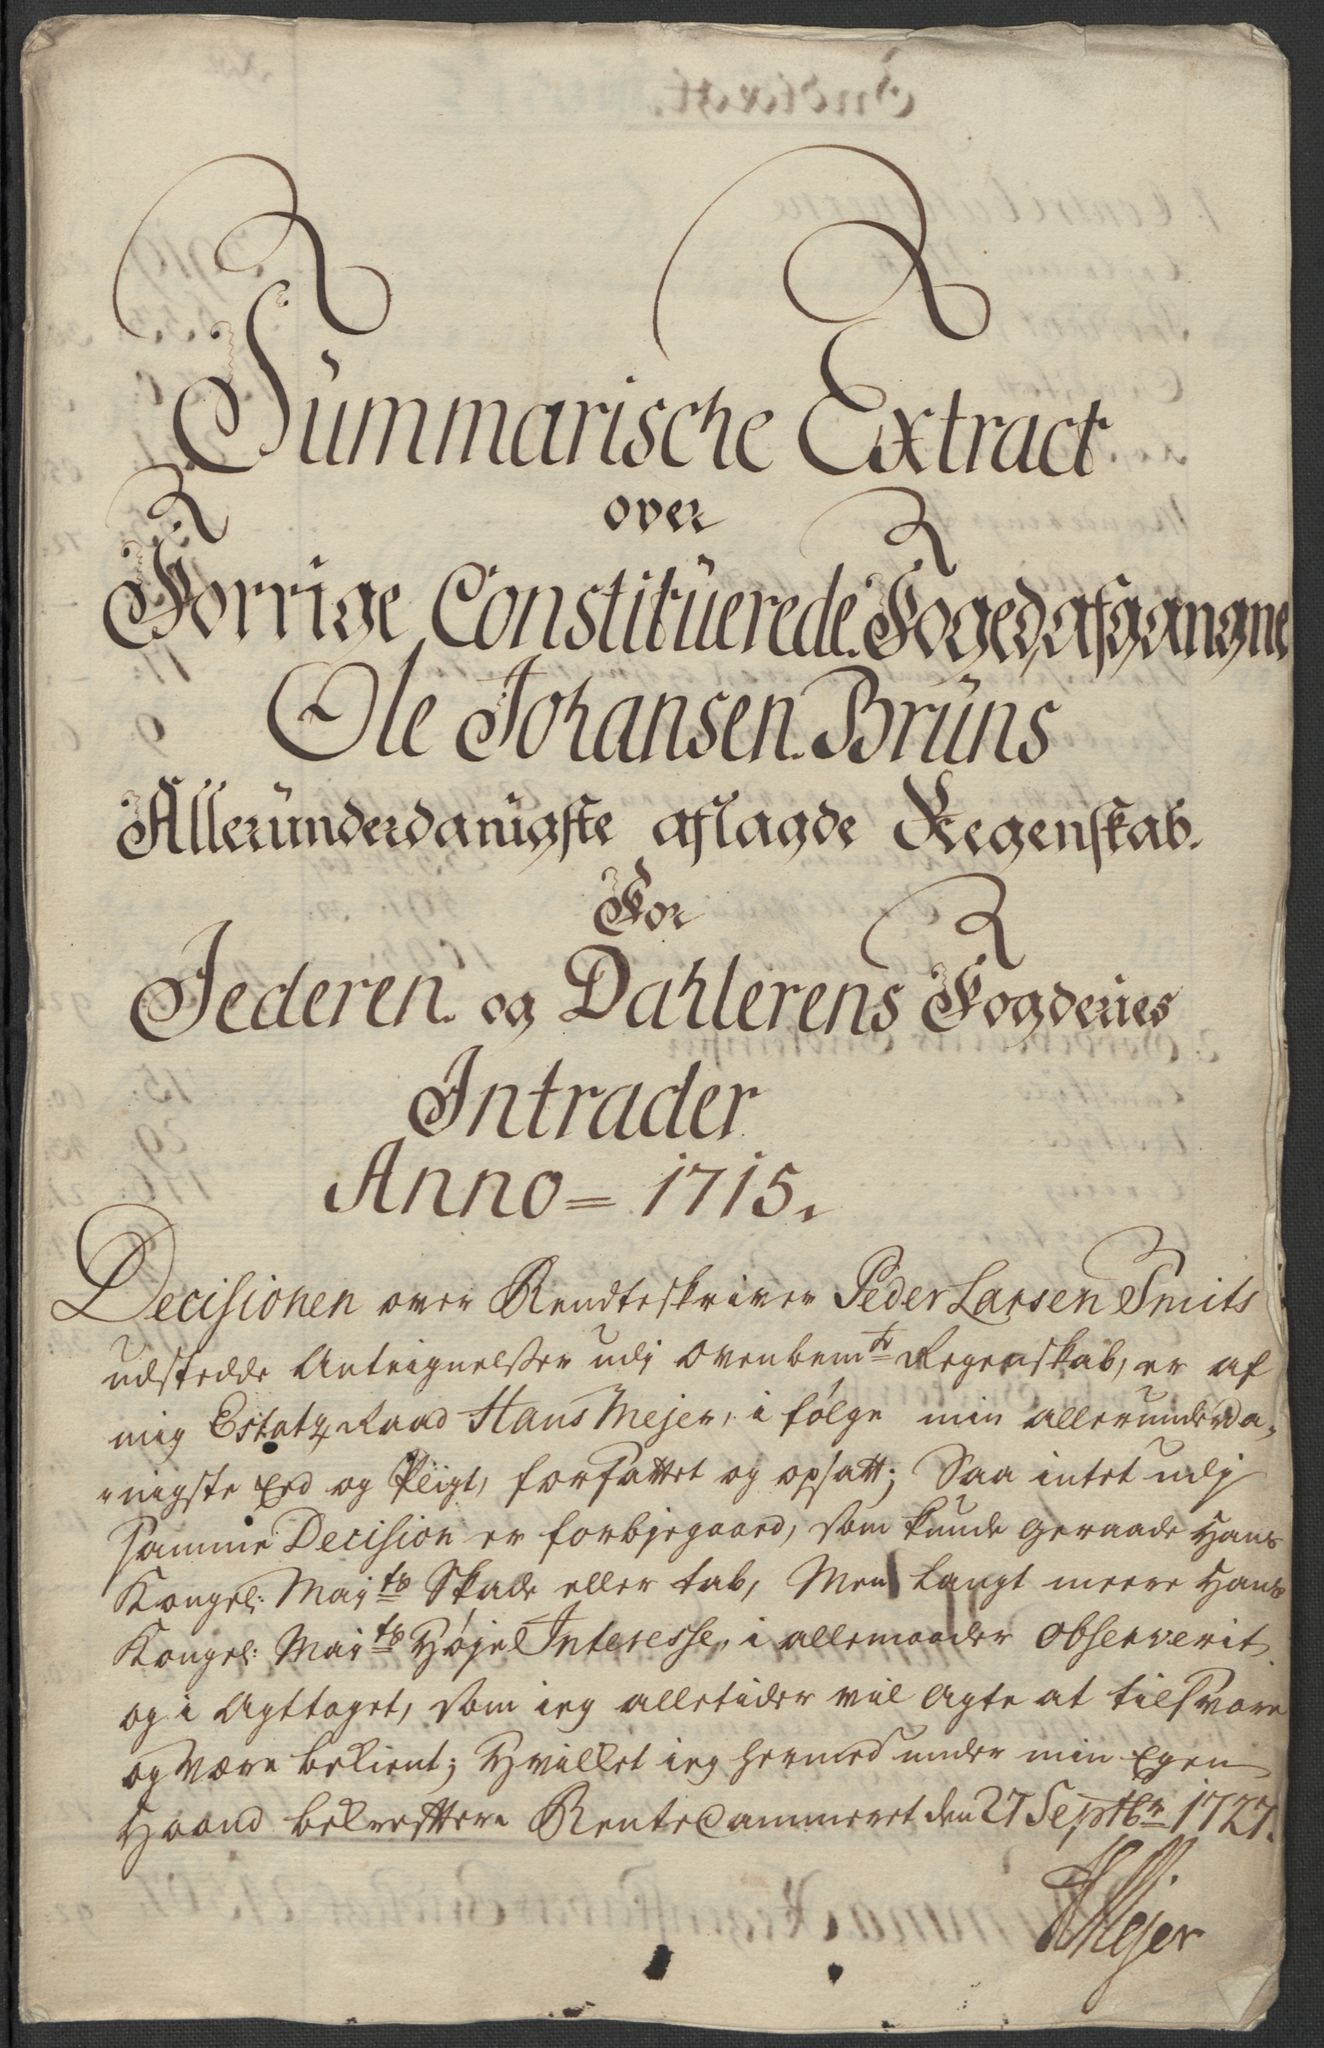 Summarische Extract
over
Forrige Constituerede Foged, afgangne
Ole Johansen Bruns
Allerunderdanigste aflagde Regenskab.
For
Jederen og Dahlerens Fogderies
Intrader
Anno = 1715.
Decisionen over Rendteskriver Peder Larsen Smits
udstedde Antegnelsser udj ovenbemte Regenskab, er af
mig Estatz Raad Hans Mejer, i følge min allerunderda-
nigste Eed og Pligt, forfattet og opsatt; Saa intet udj
samme Decision er forbjegaaed, som kunde geraade Hans
Kongel: Mayts Skade eller tab, Men langt meere Hans
Kongel: Mayts Høje Interesse, i allemaader observerit,
og i Agttaget, som ieg alletider vil agte at tilsvare
og være bekient; Hvilket ieg hermed under min Egen
Haand bekreffter. Rente Cammeret den 27 Septbr 1727.
HMejer